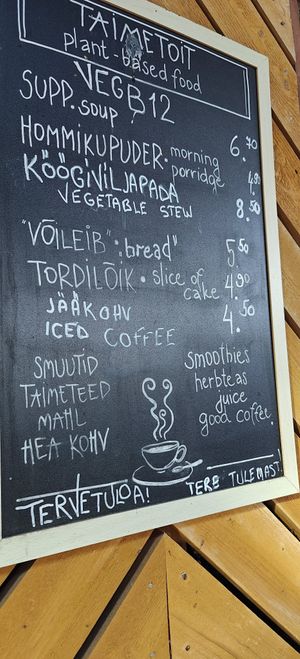 TAIMETOIT
plant-based food
VEGB12
SUPP. soup 6.70
HOMMIKUPUDER. morning porridge 4.90
KÖÖGIVILJAPADA
VEGETABLE STEW 8.50
"VÕILEIB": bread" 5.50
TORDILÕIK. slice of cake 4.90
JÄÄKOHV
ICED COFFEE 4.50
SMUUTID smoothies
TAIMETEED herbteas
MAHL juice
HEA KOHV good coffee
TERVETULOA! TERE TULEMAST!